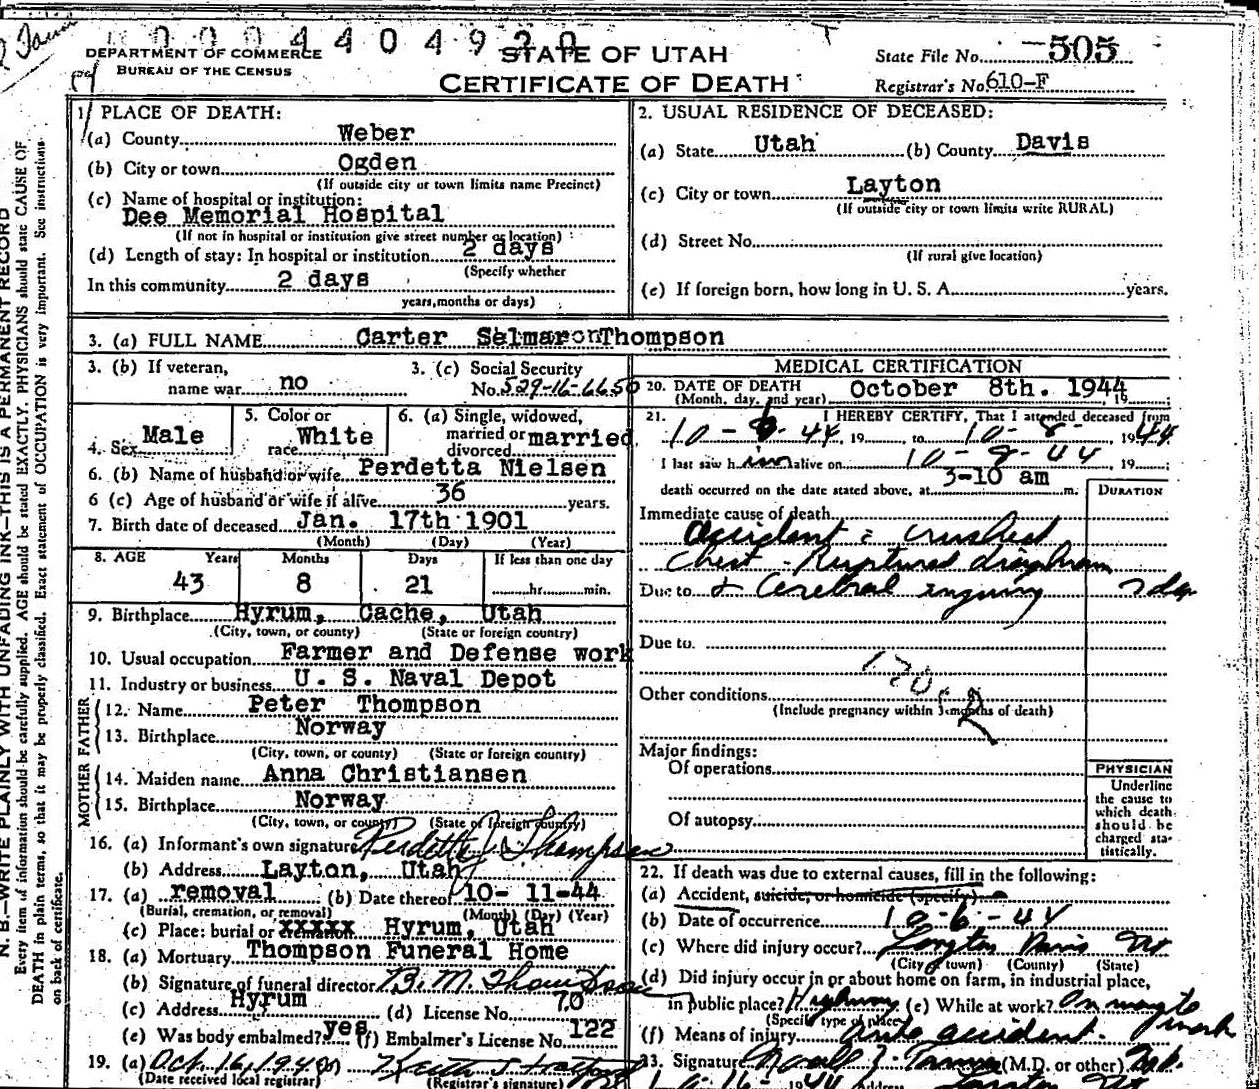 0004404920
DEPARTMENT OF COMMERCE
BUREAU OF THE CENSUS
STATE OF UTAH
CERTIFICATE OF DEATH
State File No. 505
Registrar's No. 610-F
N. B.—WRITE PLAINLY WITH UNFADING INK—THIS IS A PERMANENT RECORD
Every item of information should be carefully supplied. AGE should be stated EXACTLY. PHYSICIANS should state CAUSE OF
DEATH in plain terms, so that it may be properly classified. Exact statement of OCCUPATION is very important. See instructions
on back of certificate.
1. PLACE OF DEATH:
(a) County Weber
(b) City or town Ogden
(If outside city or town limits name Precinct)
(c) Name of hospital or institution:
Dee Memorial Hospital
(If not in hospital or institution give street number or location)
(d) Length of stay: In hospital or institution 2 days
(Specify whether
In this community 2 days
years, months or days)
2. USUAL RESIDENCE OF DECEASED:
(a) State Utah (b) County Davis
(c) City or town Layton
(If outside city or town limits write RURAL)
(d) Street No.
(If rural give location)
(e) If foreign born, how long in U. S. A. years.
3. (a) FULL NAME Carter Selmaron Thompson
3. (b) If veteran, name war no
3. (c) Social Security No. 529-16-6650
4. Sex Male
5. Color or race White
6. (a) Single, widowed, married or divorced married
6. (b) Name of husband or wife Perdetta Nielsen
6 (c) Age of husband or wife if alive 36 years.
7. Birth date of deceased Jan. 17th 1901
(Month) (Day) (Year)
8. AGE Years Months Days If less than one day
43 8 21 hr. min.
9. Birthplace Hyrum, Cache, Utah
(City, town, or county) (State or foreign country)
10. Usual occupation Farmer and Defense work
11. Industry or business U. S. Naval Depot
FATHER
12. Name Peter Thompson
13. Birthplace Norway
(City, town, or county) (State or foreign country)
MOTHER
14. Maiden name Anna Christiansen
15. Birthplace Norway
(City, town, or county) (State or foreign country)
16. (a) Informant's own signature Perdetta J Thompson
(b) Address Layton, Utah
17. (a) removal (b) Date thereof 10- 11-44
(Burial, cremation, or removal) (Month) (Day) (Year)
(c) Place: burial or xxxxx Hyrum, Utah
18. (a) Mortuary Thompson Funeral Home
(b) Signature of funeral director B. M. Thompson
(c) Address Hyrum (d) License No. 70
(e) Was body embalmed? yes (f) Embalmer's License No. 122
19. (a) Oct. 16, 194
(Date received local registrar) (Registrar's signature)
MEDICAL CERTIFICATION
20. DATE OF DEATH October 8th. 1944, 19
(Month, day, and year)
21. I HEREBY CERTIFY, That I attended deceased from
10-6-44, 19 to 10-8- 1944
I last saw him alive on 10-8-44, 19
death occurred on the date stated above, at 3-10 am m.
DURATION
Immediate cause of death
accident = crushed
chest - Ruptured diaphram
Due to & Cerebral
Due to.
Other conditions
(Include pregnancy within 3 months of death)
Major findings:
Of operations
Of autopsy
PHYSICIAN
Underline
the cause to
which death
should be
charged sta-
tistically.
22. If death was due to external causes, fill in the following:
(a) Accident, suicide, or homicide (specify)
(b) Date of occurrence 10-6-44
(c) Where did injury occur? Layton Davis Ut
(City or town) (County) (State)
(d) Did injury occur in or about home on farm, in industrial place,
in public place? Highway (e) While at work? On way to work
(Specify type of place)
(f) Means of injury auto accident.
23. Signature Noall Z. Tanner (M.D. or other) M.D.
10-16-1944 Address Layton Ut